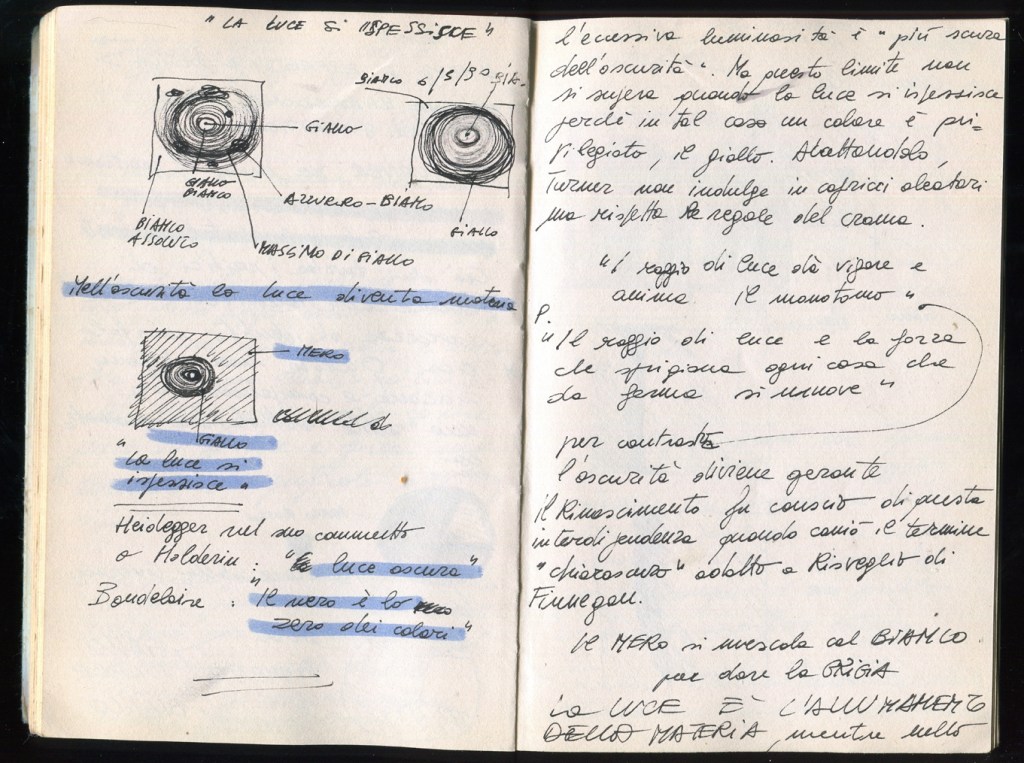 "LA LUCE SI ISPESSISCE"
BIANCO 6/9/90
GIALLO
GIALLO
BIANCO
AZZURRO-BIANCO
BIANCO
ASSOLUTO
GIALLO
MASSIMO DI GIALLO
Nell'oscurità la luce diventa materia
NERO
GIALLO
"
la luce si
ispessisce"
Heidegger nel suo commento
a Holderin : "la luce oscura"
Baudelaire : "Il nero è lo
zero dei colori"
l'eccessiva luminosità è "più scura
dell'oscurità". Ma questo limite non
si supera quando la luce si ispessisce
perché in tal caso un colore è pri-
vilegiato, il giallo. Adottandolo,
Turner non indulge in capricci aleatori
ma rispetta le regole del croma.
"I raggio di luce dà vigore e
anima il monotono"
P.
"Il raggio di luce e la forza
che sprigiona ogni cosa che
da forma si muove"
per contrasto
l'oscurità diviene gerante
il Rinascimento fu conscio di questa
interdipendenza quando coniò il termine
"chiaroscuro" adatto a Risveglio di
Finnegan.
Il NERO si mescola col BIANCO
per dare la GRIGIA
la LUCE È L'ALLUMAMENTO
DELLA MATERIA, mentre nello